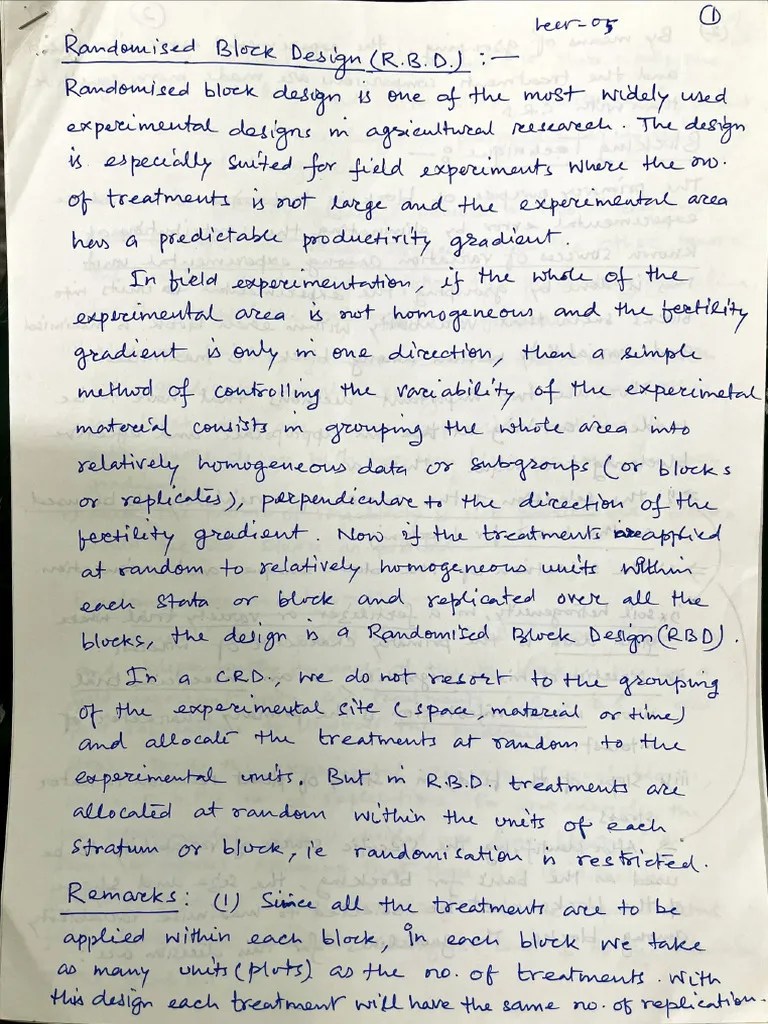 Lecr-05 ①
Randomised Block Design (R.B.D.) :—
Randomised block design is one of the most widely used
experimental designs in agricultural research. The design
is especially suited for field experiments where the no.
of treatments is not large and the experimental area
has a predictable productivity gradient.
In field experimentation, if the whole of the
experimental area is not homogeneous and the fertility
gradient is only in one direction, then a simple
method of controlling the variability of the experimetal
material consists in grouping the whole area into
relatively homogeneous data or subgroups (or blocks
or replicates), perpendicular to the direction of the
fertility gradient. Now if the treatments are applied
at random to relatively homogeneous units within
each stata or block and replicated over all the
blocks, the design is a Randomised Block Design (RBD).
In a CRD., we do not resort to the grouping
of the experimental site (space, material or time)
and allocate the treatments at random to the
experimental units. But in R.B.D. treatments are
allocated at random within the units of each
stratum or block, ie randomisation is restricted.
Remarks: (1) Since all the treatments are to be
applied within each block, in each block we take
as many units (plots) as the no. of treatments. With
this design each treatment will have the same no. of replication.